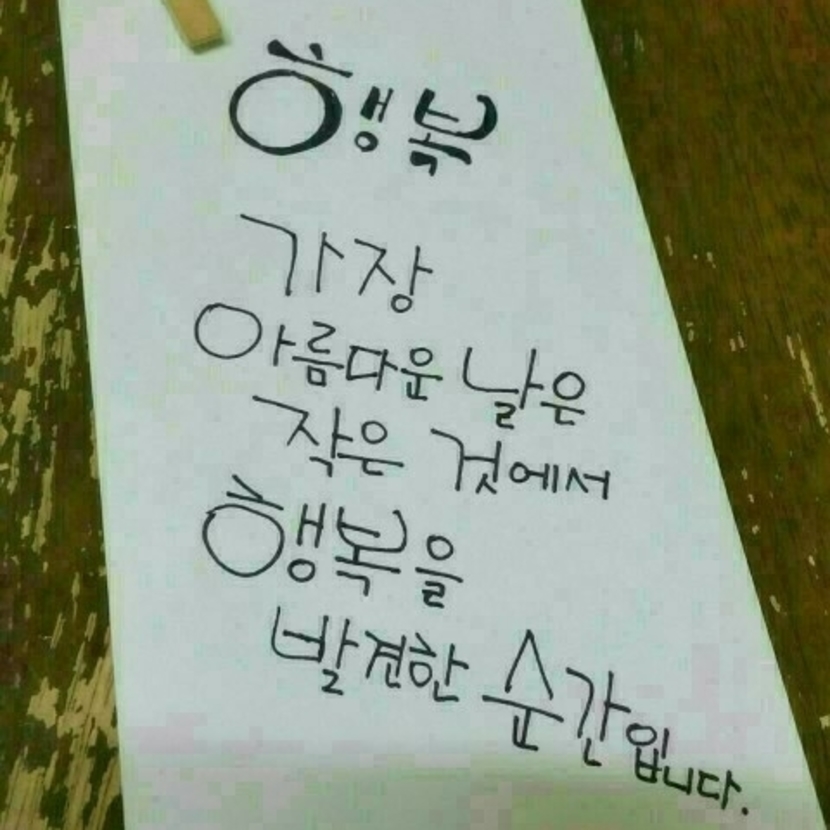 행복
가장
아름다운 날은
작은 것에서
행복을
발견한 순간입니다.